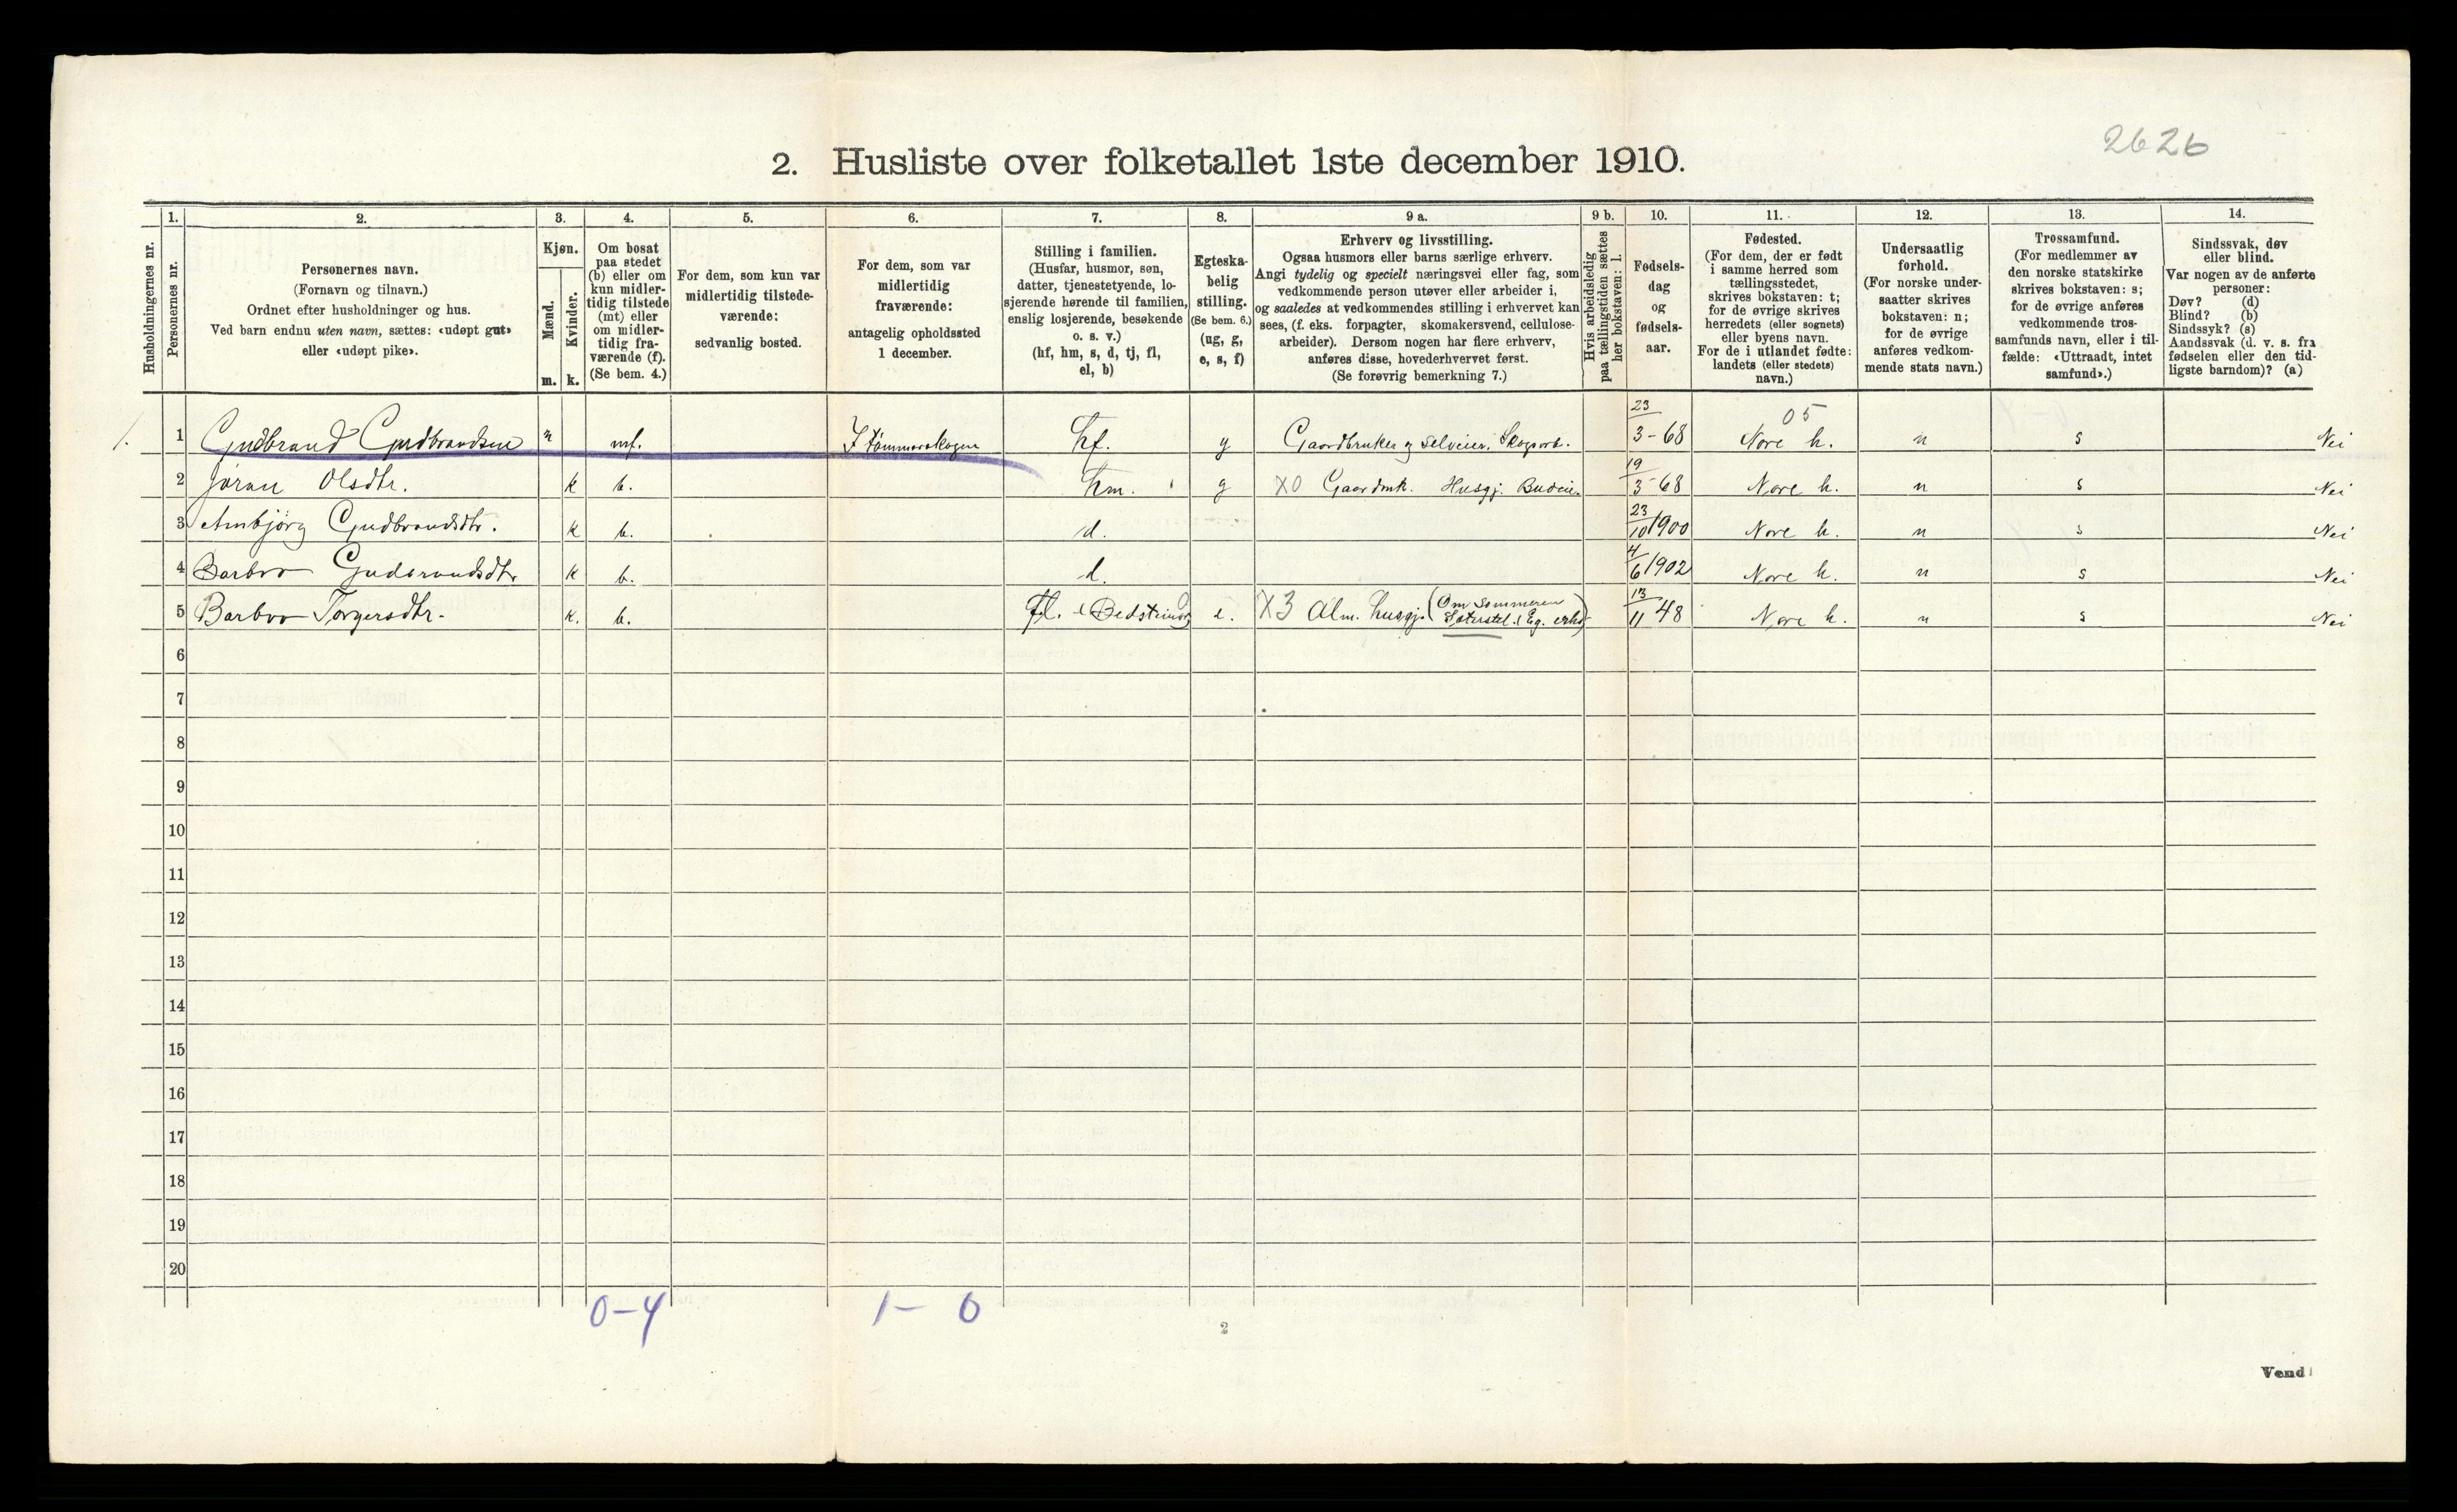 2626
2. Husliste over folketallet 1ste december 1910.
Husholdningernes nr.
1. Personernes nr.
2. Personernes navn.
(Fornavn og tilnavn.)
Ordnet efter husholdninger og hus.
Ved barn endnu uten navn, sættes: «udøpt gut»
eller «udøpt pike».
3. Kjøn.
Mænd. m.
Kvinder. k.
4. Om bosat
paa stedet
(b) eller om
kun midler-
tidig tilstede
(mt) eller
om midler-
tidig fra-
værende (f).
(Se bem. 4.)
5. For dem, som kun var
midlertidig tilstede-
værende:
sedvanlig bosted.
6. For dem, som var
midlertidig
fraværende:
antagelig opholdssted
1 december.
7. Stilling i familien.
(Husfar, husmor, søn,
datter, tjenestetyende, lo-
sjerende hørende til familien,
enslig losjerende, besøkende
o. s. v.)
(hf, hm, s, d, tj, fl,
el, b)
8. Egteska-
belig
stilling.
(Se bem. 6.)
(ug, g,
e, s, f)
9 a. Erhverv og livsstilling.
Ogsaa husmors eller barns særlige erhverv.
Angi tydelig og specielt næringsvei eller fag, som
vedkommende person utøver eller arbeider i,
og saaledes at vedkommendes stilling i erhvervet kan
sees, (f. eks. forpagter, skomakersvend, cellulose-
arbeider). Dersom nogen har flere erhverv,
anføres disse, hovederhvervet først.
(Se forøvrig bemerkning 7.)
9 b. Hvis arbeidsledig
paa tællingstiden sættes
her bokstaven: l.
10. Fødsels-
dag
og
fødsels-
aar.
11. Fødested.
(For dem, der er født
i samme herred som
tællingsstedet,
skrives bokstaven: t;
for de øvrige skrives
herredets (eller sognets)
eller byens navn.
For de i utlandet fødte:
landets (eller stedets)
navn.)
12. Undersaatlig
forhold.
(For norske under-
saatter skrives
bokstaven: n;
for de øvrige
anføres vedkom-
mende stats navn.)
13. Trossamfund.
(For medlemmer av
den norske statskirke
skrives bokstaven: s;
for de øvrige anføres
vedkommende tros-
samfunds navn, eller i til-
fælde: «Uttraadt, intet
samfund».)
14. Sindssvak, døv
eller blind.
Var nogen av de anførte
personer:
Døv? (d)
Blind? (b)
Sindssyk? (s)
Aandssvak (d. v. s. fra
fødselen eller den tid-
ligste barndom)? (a)
1. 1 Gudbrand Gudbrandsen mf. I tømmerskogen hf. g Gaardbruker og selveier. Skogsarb. 23/3-68 05 Nore h. n s Nei
2 Jøran Olsdtr. k b. hm. g X0 Gaardmk. Husgj. Budeie. 19/3-68 Nore h. n s Nei
3 Ambjørg Gudbrandsdtr. k b. d. 23/10 1900 Nore h. n s Nei
4 Barbro Gudbrandsdtr. k b. d. 4/6 1902 Nore h. n s Nei
5 Barbro Torgersdtr. k. b. fl. Bedstemor e. X3 Alm. husgj. (Om sommeren 13/11 48 Nore h. n s Nei
6
7
8
9
10
11
12
13
14
15
16
17
18
19
20
0-4 1-0
2
Vend